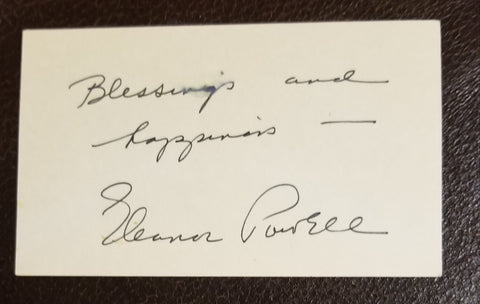 Blessings and
happiness —
Eleanor Powell